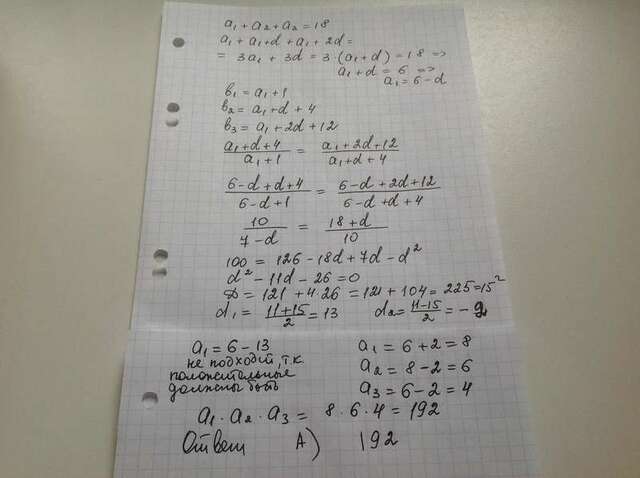 a₁ + a₂ + a₂ = 18
a₁ + a₁+d + a₁ + 2d =
= 3a₁ + 3d = 3·(a₁+d) = 18 =>
a₁+d = 6 =>
a₁ = 6-d
в₁ = a₁+1
в₂ = a₁+d + 4
в₃ = a₁ + 2d + 12
(a₁+d+4)/(a₁+1) = (a₁+2d+12)/(a₁+d+4)
(6-d+d+4)/(6-d+1) = (6-d+2d+12)/(6-d+d+4)
10/(7-d) = (18+d)/10
100 = 126 - 18d + 7d - d²
d² - 11d - 26 = 0
D = 121 + 4·26 = 121 + 104 = 225 = 15²
d₁ = (11+15)/2 = 13 d₂ = (11-15)/2 = -2
a₁ = 6 - 13
не подходит, т.к.
положительные
должны быть
a₁ = 6+2 = 8
a₂ = 8-2 = 6
a₃ = 6-2 = 4
a₁·a₂·a₃ = 8·6·4 = 192
Ответ А) 192